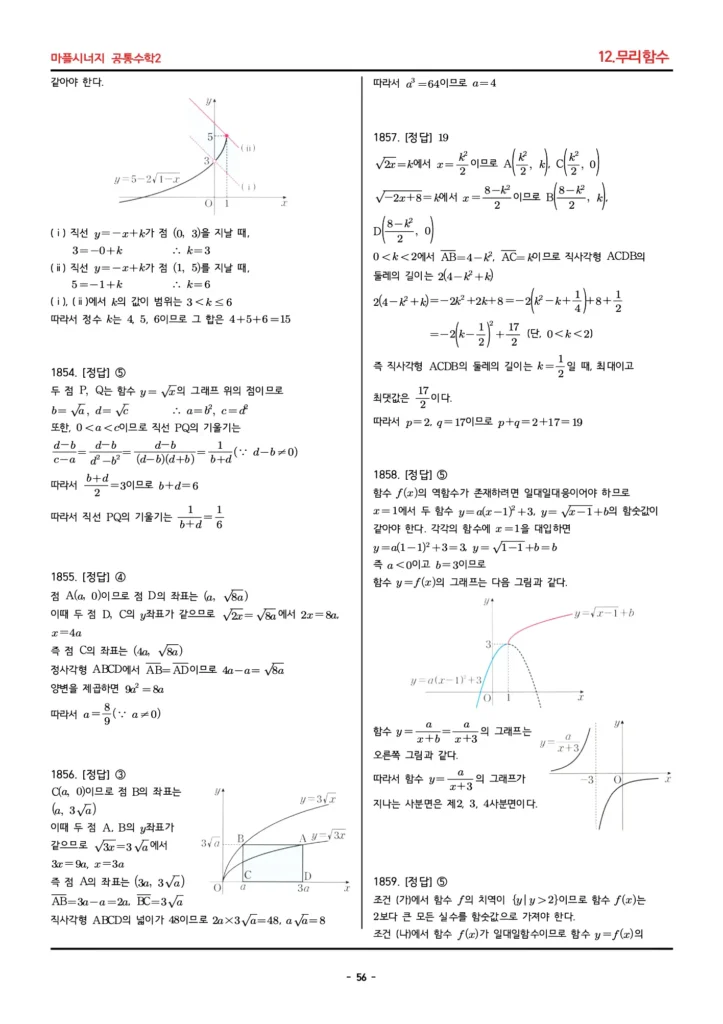 마플시너지 공통수학2
12.무리함수
같아야 한다.
y
5
3
(ii)
(i)
y=5-2√(1-x)
O 1 x
(ⅰ) 직선 y=-x+k가 점 (0, 3)을 지날 때,
3=-0+k ∴ k=3
(ⅱ) 직선 y=-x+k가 점 (1, 5)를 지날 때,
5=-1+k ∴ k=6
(ⅰ), (ⅱ)에서 k의 값이 범위는 3<k≤6
따라서 정수 k는 4, 5, 6이므로 그 합은 4+5+6=15
1854. [정답] ⑤
두 점 P, Q는 함수 y=√x의 그래프 위의 점이므로
b=√a, d=√c ∴ a=b², c=d²
또한, 0<a<c이므로 직선 PQ의 기울기는
(d-b)/(c-a)=(d-b)/(d²-b²)=(d-b)/((d-b)(d+b))=1/(b+d) (∵ d-b≠0)
따라서 (b+d)/2=3이므로 b+d=6
따라서 직선 PQ의 기울기는 1/(b+d)=1/6
1855. [정답] ④
점 A(a, 0)이므로 점 D의 좌표는 (a, √(8a))
이때 두 점 D, C의 y좌표가 같으므로 √(2x)=√(8a)에서 2x=8a,
x=4a
즉 점 C의 좌표는 (4a, √(8a))
정사각형 ABCD에서 A̅B̅=A̅D̅이므로 4a-a=√(8a)
양변을 제곱하면 9a²=8a
따라서 a=8/9 (∵ a≠0)
1856. [정답] ③
C(a, 0)이므로 점 B의 좌표는
(a, 3√a)
이때 두 점 A, B의 y좌표가
같으므로 √(3x)=3√a에서
3x=9a, x=3a
즉 점 A의 좌표는 (3a, 3√a)
A̅B̅=3a-a=2a, B̅C̅=3√a
y
y=3√x
3√a B A y=√(3x)
C D
O a 3a x
직사각형 ABCD의 넓이가 48이므로 2a×3√a=48, a√a=8
따라서 a³=64이므로 a=4
1857. [정답] 19
√(2x)=k에서 x=k²/2이므로 A(k²/2, k), C(k²/2, 0)
√(-2x+8)=k에서 x=(8-k²)/2이므로 B((8-k²)/2, k),
D((8-k²)/2, 0)
0<k<2에서 A̅B̅=4-k², A̅C̅=k이므로 직사각형 ACDB의
둘레의 길이는 2(4-k²+k)
2(4-k²+k)=-2k²+2k+8=-2(k²-k+1/4)+8+1/2
=-2(k-1/2)²+17/2 (단, 0<k<2)
즉 직사각형 ACDB의 둘레의 길이는 k=1/2일 때, 최대이고
최댓값은 17/2이다.
따라서 p=2, q=17이므로 p+q=2+17=19
1858. [정답] ⑤
함수 f(x)의 역함수가 존재하려면 일대일대응이어야 하므로
x=1에서 두 함수 y=a(x-1)²+3, y=√(x-1)+b의 함숫값이
같아야 한다. 각각의 함수에 x=1을 대입하면
y=a(1-1)²+3=3, y=√(1-1)+b=b
즉 a<0이고 b=3이므로
함수 y=f(x)의 그래프는 다음 그림과 같다.
y
y=√(x-1)+b
3
y=a(x-1)²+3
O 1 x
함수 y=a/(x+b)=a/(x+3)의 그래프는
오른쪽 그림과 같다.
따라서 함수 y=a/(x+3)의 그래프가
지나는 사분면은 제2, 3, 4사분면이다.
y
y=a/(x+3)
-3 O x
1859. [정답] ⑤
조건 (가)에서 함수 f의 치역이 {y|y>2}이므로 함수 f(x)는
2보다 큰 모든 실수를 함숫값으로 가져야 한다.
조건 (나)에서 함수 f(x)가 일대일함수이므로 함수 y=f(x)의
- 56 -